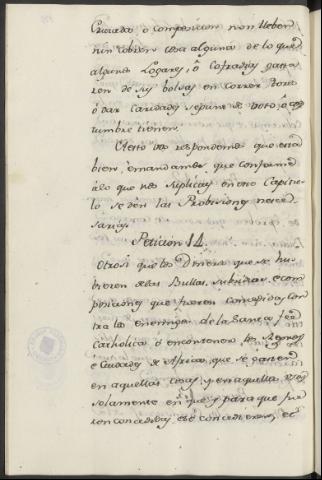 Cruzadas o composicion non lleben
nin cobren cosa alguna de lo que
algunos Logares, ô Cofradias gasta
ren de sus bolsas en correr toros
ô dar Caridades segun de voto, o cos
tumbre tienen.
A esto vos respondemos que está
bien, è mandamos que conforme
alo que nos suplicais en este Capitu
lo se dén las Probisiones nece
sarias.
Peticion 14.
Otrosi que los Dineros que se hu
bieren delas Bullas, subsidios, e com
posiciones que fueren concedidas con
tra los enemigos de la Santa feé
Catholica ô en contorno los Reynos
è Ciudades de Africa, que se gasten
en aquellas cosas y en aquello
solamente en que y para que fue
ren concedidas, ese concedieren, è